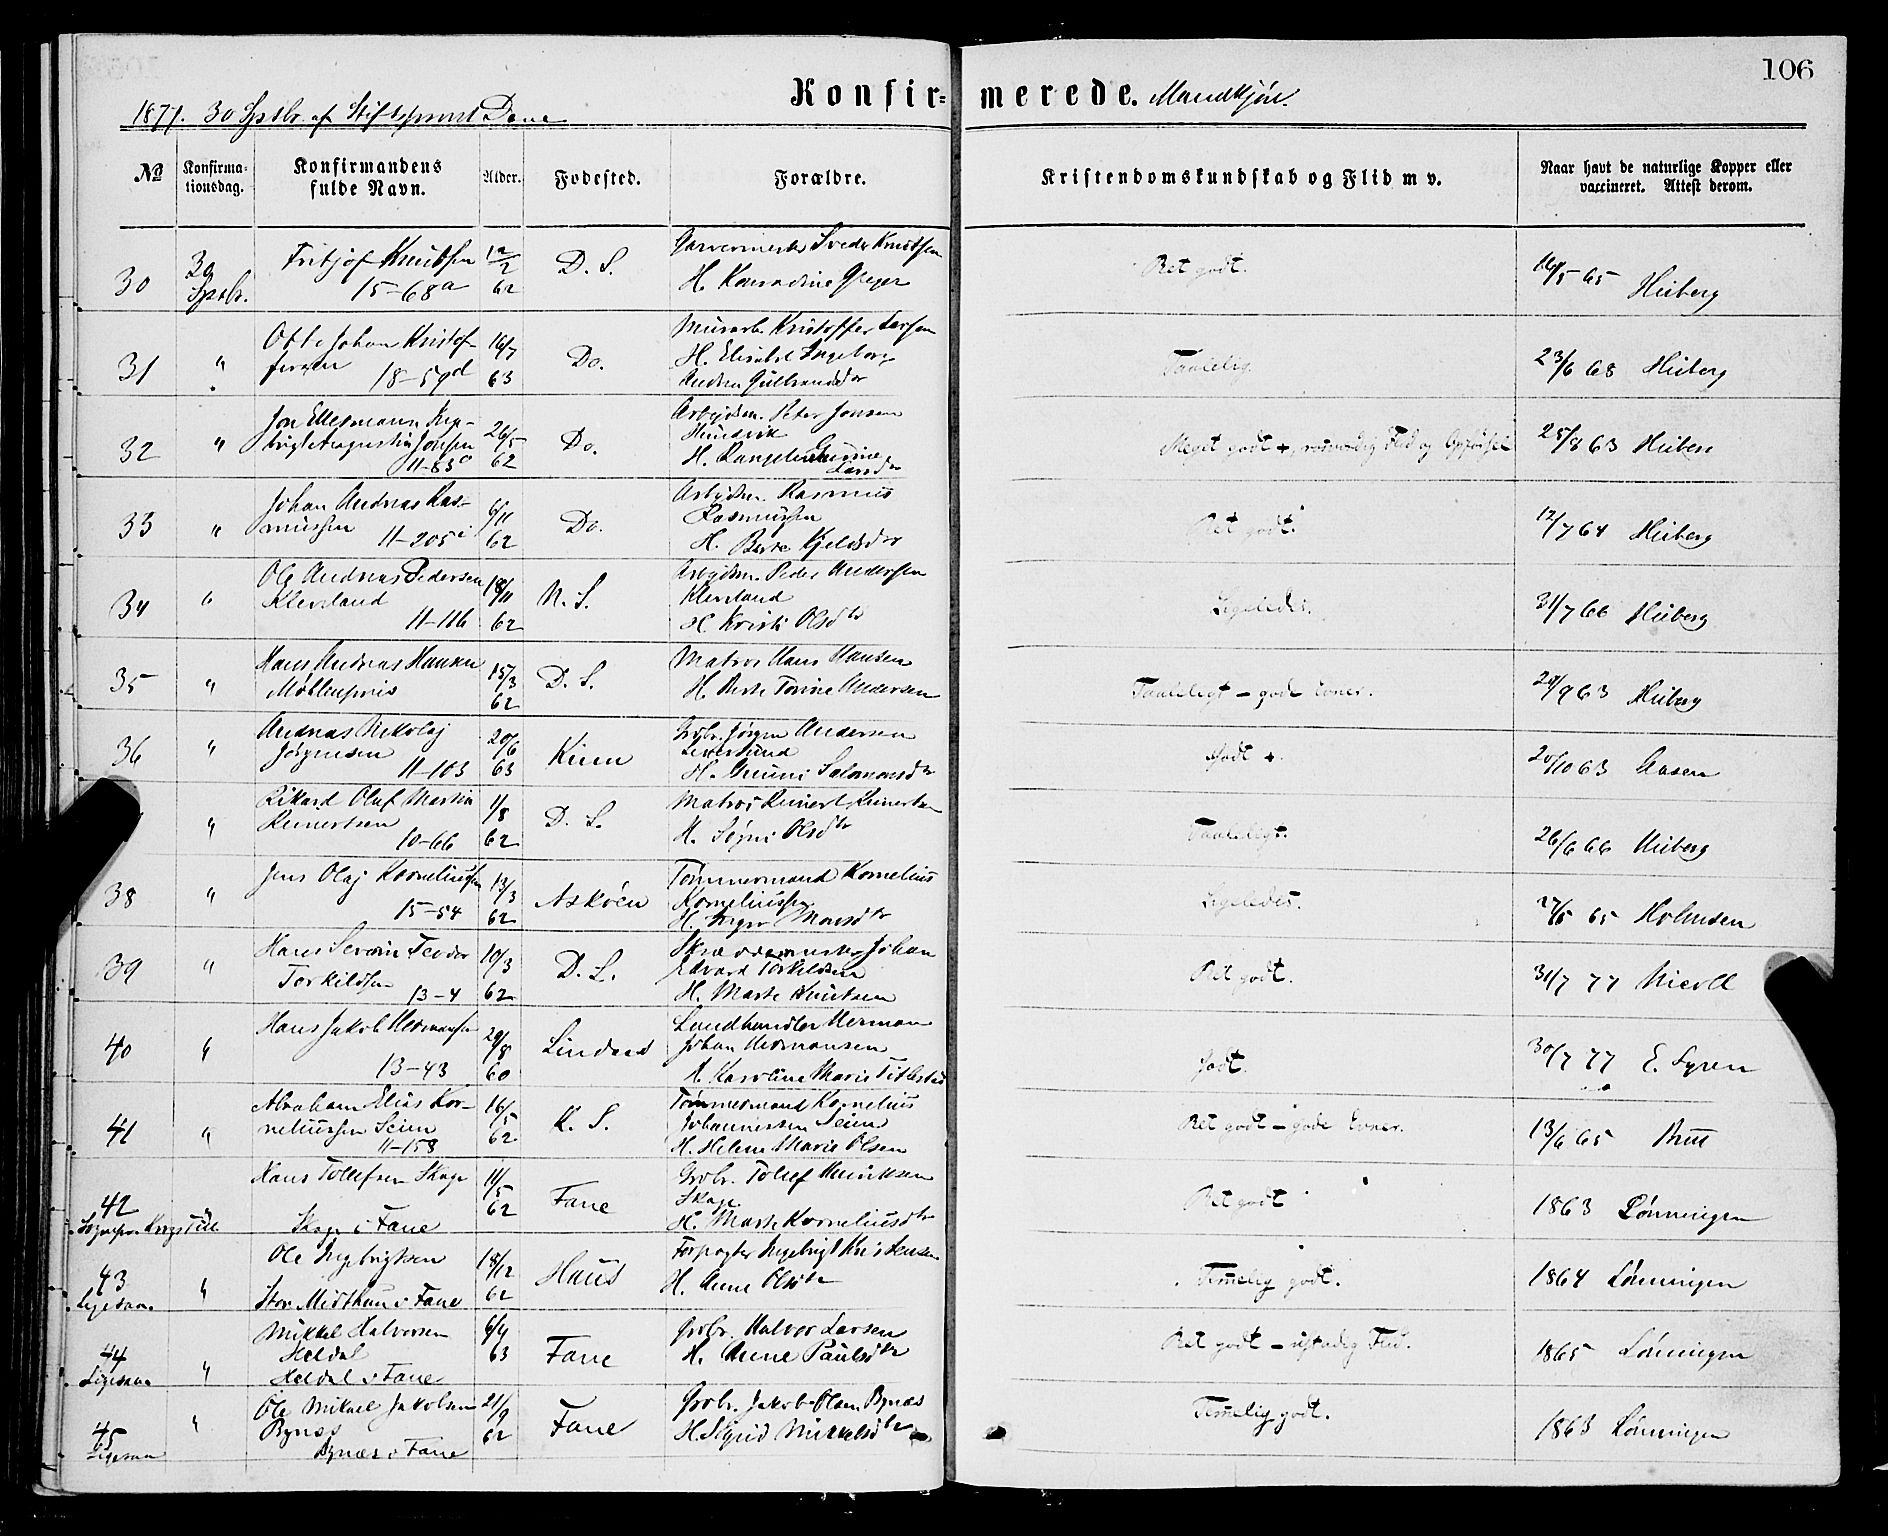 106
Konfir= merede. Mandkjøn.
1877. 30 Sptbr. af Stiftsprovst Dane
No Konfirma-tionsdag. Konfirmandens fulde Navn. Alder. Fodested. Forældre. Kristendomskundskab og Flid m v. Naar havt de naturlige Kopper eller vaccineret. Attest derom.
30 30 Sptbr. Fritjof Knutsen 15-68a 12/2 62 D. S. Garvermester Sveder Knutsen
H. Konradine Greger Ret godt. 16/5 65 Heiberg
31 " Otto Johan Kristof-
fersen 18-59d 16/7 63 Do. Murarb. Kristoffer Larsen
H. Elisabet Ingeborg
Andrea Gulbrandsdtr Taalelig. 23/6 68 Heiberg
32 " Jon Ellesmann Ing-
brigt Augustin Jonsen
11-83a 26/5 62 Do. Arbeidsm. Peter Jonsen
H. Gurine
Larsdtr Meget godt +, Flid og Opførsel 25/8 63 Heiberg
33 " Johan Andreas Ras-
mussen 11-205i 6/11 62 Do. Arbeidsm. Rasmus
Rasmussen
H. Berte Kjeldsdtr Ret godt. 12/7 64 Heiberg
34 " Ole Andreas Pedersen
Kleveland
11-116 18/11 62 N. S. Arbeidsm. Peder Andersen
Kleveland
H. Kristi Olsdtr Ligeledes. 31/7 66 Heiberg
35 " Hans Andreas Hansen
Møllenpris 15/3 62 D. S. Matros Hans Hansen
H. Berte Tomine Andersen Taaleligt - gode Evner. 24/9 63 Heiberg
36 " Andreas Nikolaj
Jørgensen
11-103 20/6 63 Kinn Grbr. Jørgen Andersen
H. Gunni Salomonsdtr Godt +. 20/10 63 Aasen
" Rikard Olaf Martin
Reinertsen
10-66 1/8 62 D. S. Matros Reinert Reinertsen
H. Signi Olsdtr Taaleligt. 26/6 66 Heiberg
38 " Jens Olaj Korneliussen
15-54 13/3 62 Askøen Tømmermand Kornelius
Korneliussen
H. Inger Monsdtr Ligeledes. 27/5 65 Holmsen
39 " Hans Severin Teodor
Torkildsen 13-4 10/3 62 D. S. Skræddermester Johan
Edvard Torkildsen
H. Marte Knutsen Ret godt. 31/7 77 Nicoll
40 " Hans Jakob Hermansen
13-43 29/8 60 Lindaas Landhandler Herman
Johan Hermansen
H. Karoline Marie Titlestad Godt. 30/7 77 E. Syren
41 " Abraham Elias Kor-
neliussen Seim
11-158 16/5 62 K. S. Tømmermand Kornelius
Johannessen Seim
H. Helene Marie Olsen Ret godt - gode Evner. 13/6 65
42 " Hans Tollefsen Skage
Skage i Fane 11/5 62 Fane Grbr. Tollef Henriksen
Skage
H. Marte Korneliusdtr Ret godt 1863 Lønningen
43 Ligesaa " Ole Ingebrigtsen
Stor Midthun i Fane 18/12 62 Haus Forpagter Ingebrigt Kristensen
H. Anne Olsdtr Temelig godt. 1864 Lønningen
44 Ligesaa " Mikkel Halvorsen
Heldal
Heldal i Fane 6/4 63 Fane Grbr. Halvor Larsen
H. Anne Paulsdtr Ret godt - ustadig Flid. 1865 Lønningen
45 Ligesaa " Ole Mikael Jakobsen
Bynæs
Bynæs i Fane 21/9 62 Fane Grbr. Jakob Olsen Bynæs
H. Sigrid Mikkelsdtr Temelig godt. 1863 Lønningen